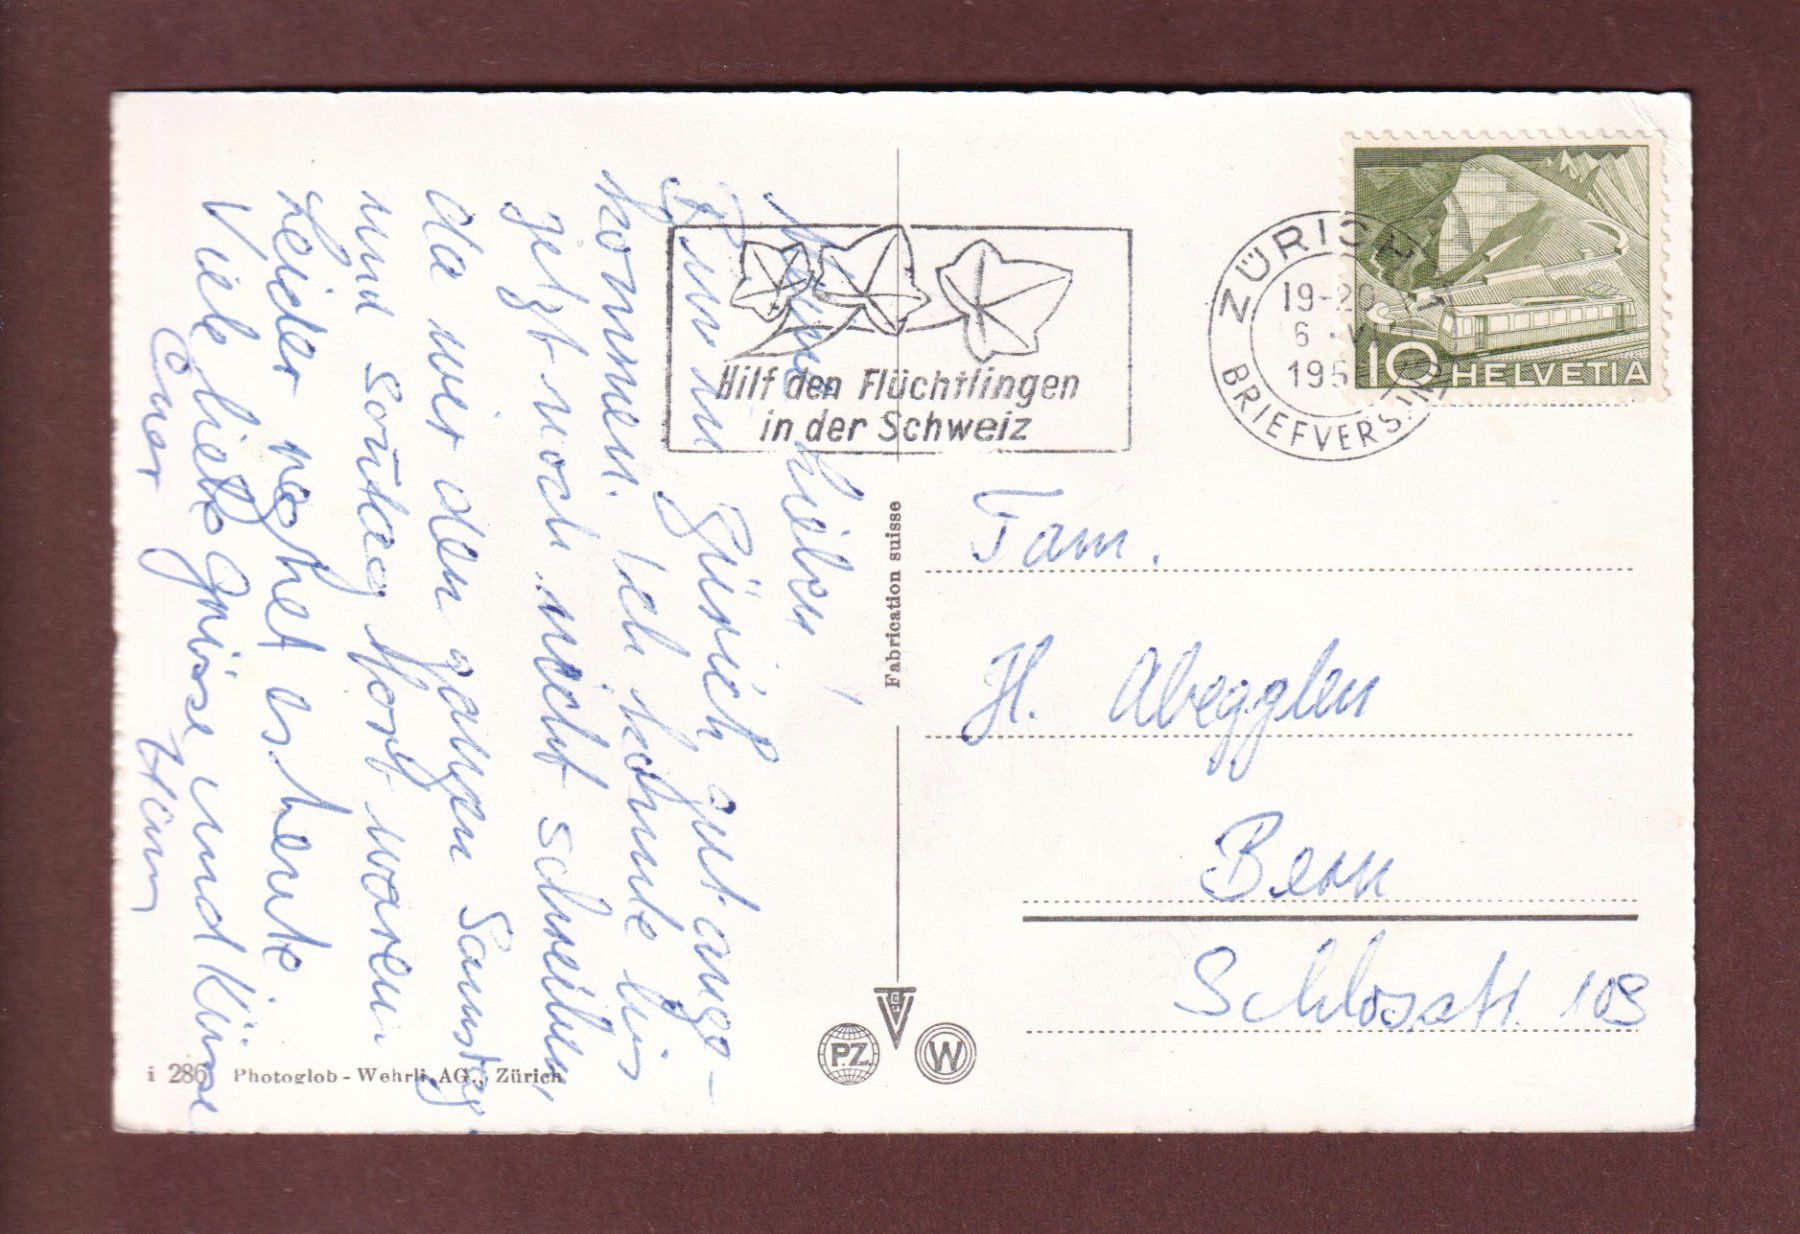 Meine Lieben!
Bin in Zürich gut ange-
kommen. Ich konnte bis
jetzt noch nicht schreiben,
da wir den ganzen Samstag
und Sontag fort waren.
Leider regnet es heute.
Viele liebe Grüsse und Küsse
Euer
Hilf den Flüchtlingen
in der Schweiz
ZÜRICH
19-20
6 . VI
195
BRIEFVERSAND
10 HELVETIA
Fabrication suisse
Fam.
H. Abegglen
Bern
Schlosstr. 108
i 286 Photoglob - Wehrli AG., Zürich
P.Z.
W